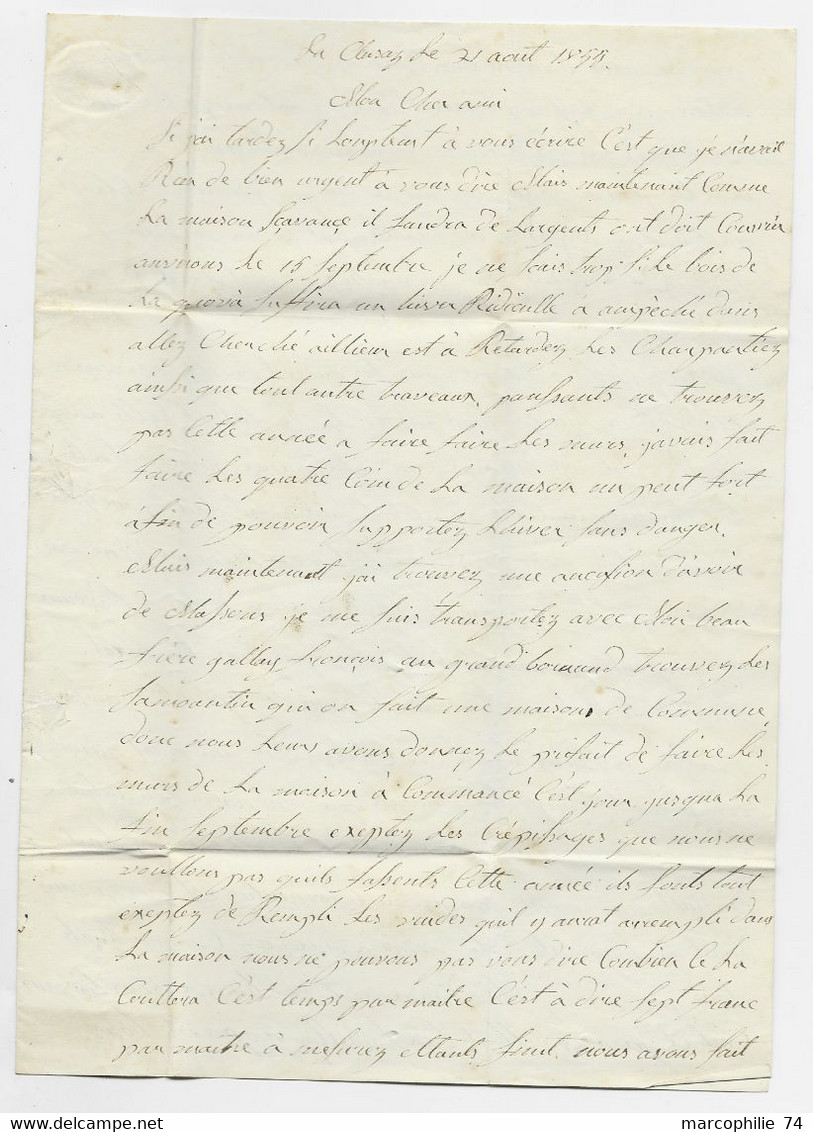 La Clusaz le 21 aout 1855.
Mon Cher ami
Si jai tardez si Longtemt à vous écrire C'est que je n'avait
Rien de bien urgent à vous dire Mais maintenant Comme
La maison Savance il faudra de Largents ont doit Couvrir
anvirons Le 15 Septembre je ne sais trop si Le bois de
La suffira un hiver Ridiculle à ampèché dans
allez Cherché aillieur est à Retardez Les Charpantiez
ainsi que tout autre traveaux, panssants ne trouvez
pas Cette année a faire faire Les murs, javais fait
faire Les quatre Coin de La maison un peut fort
afin de pouvoir supportez Lhiver sans danger.
Mais maintenant jai trouvez une aucasion d'avoir
de Massons je me suis transportez avec Mon beau
frère gallay françois au grand bornand trouvez Les
Samoantin qui on fait une maison de Commune
donc nous Leurs avons donnez Le prifait de faire Les
murs de La maison à Commancé C'est jour jusqua La
fin Septembre exeptez Les Crépissages que nous ne
voullons pas quils fassents Cette année ils fonts tout
exeptez de Rempli Les vuides quil y aurat arrempli dans
La maison nous ne pouvons pas vous dire Combien Ce La
Couttera C'est temps par maitre C'est à dire Sept franc
par maitre à mesurez ettants finit. nous avons fait
marcophilie 74